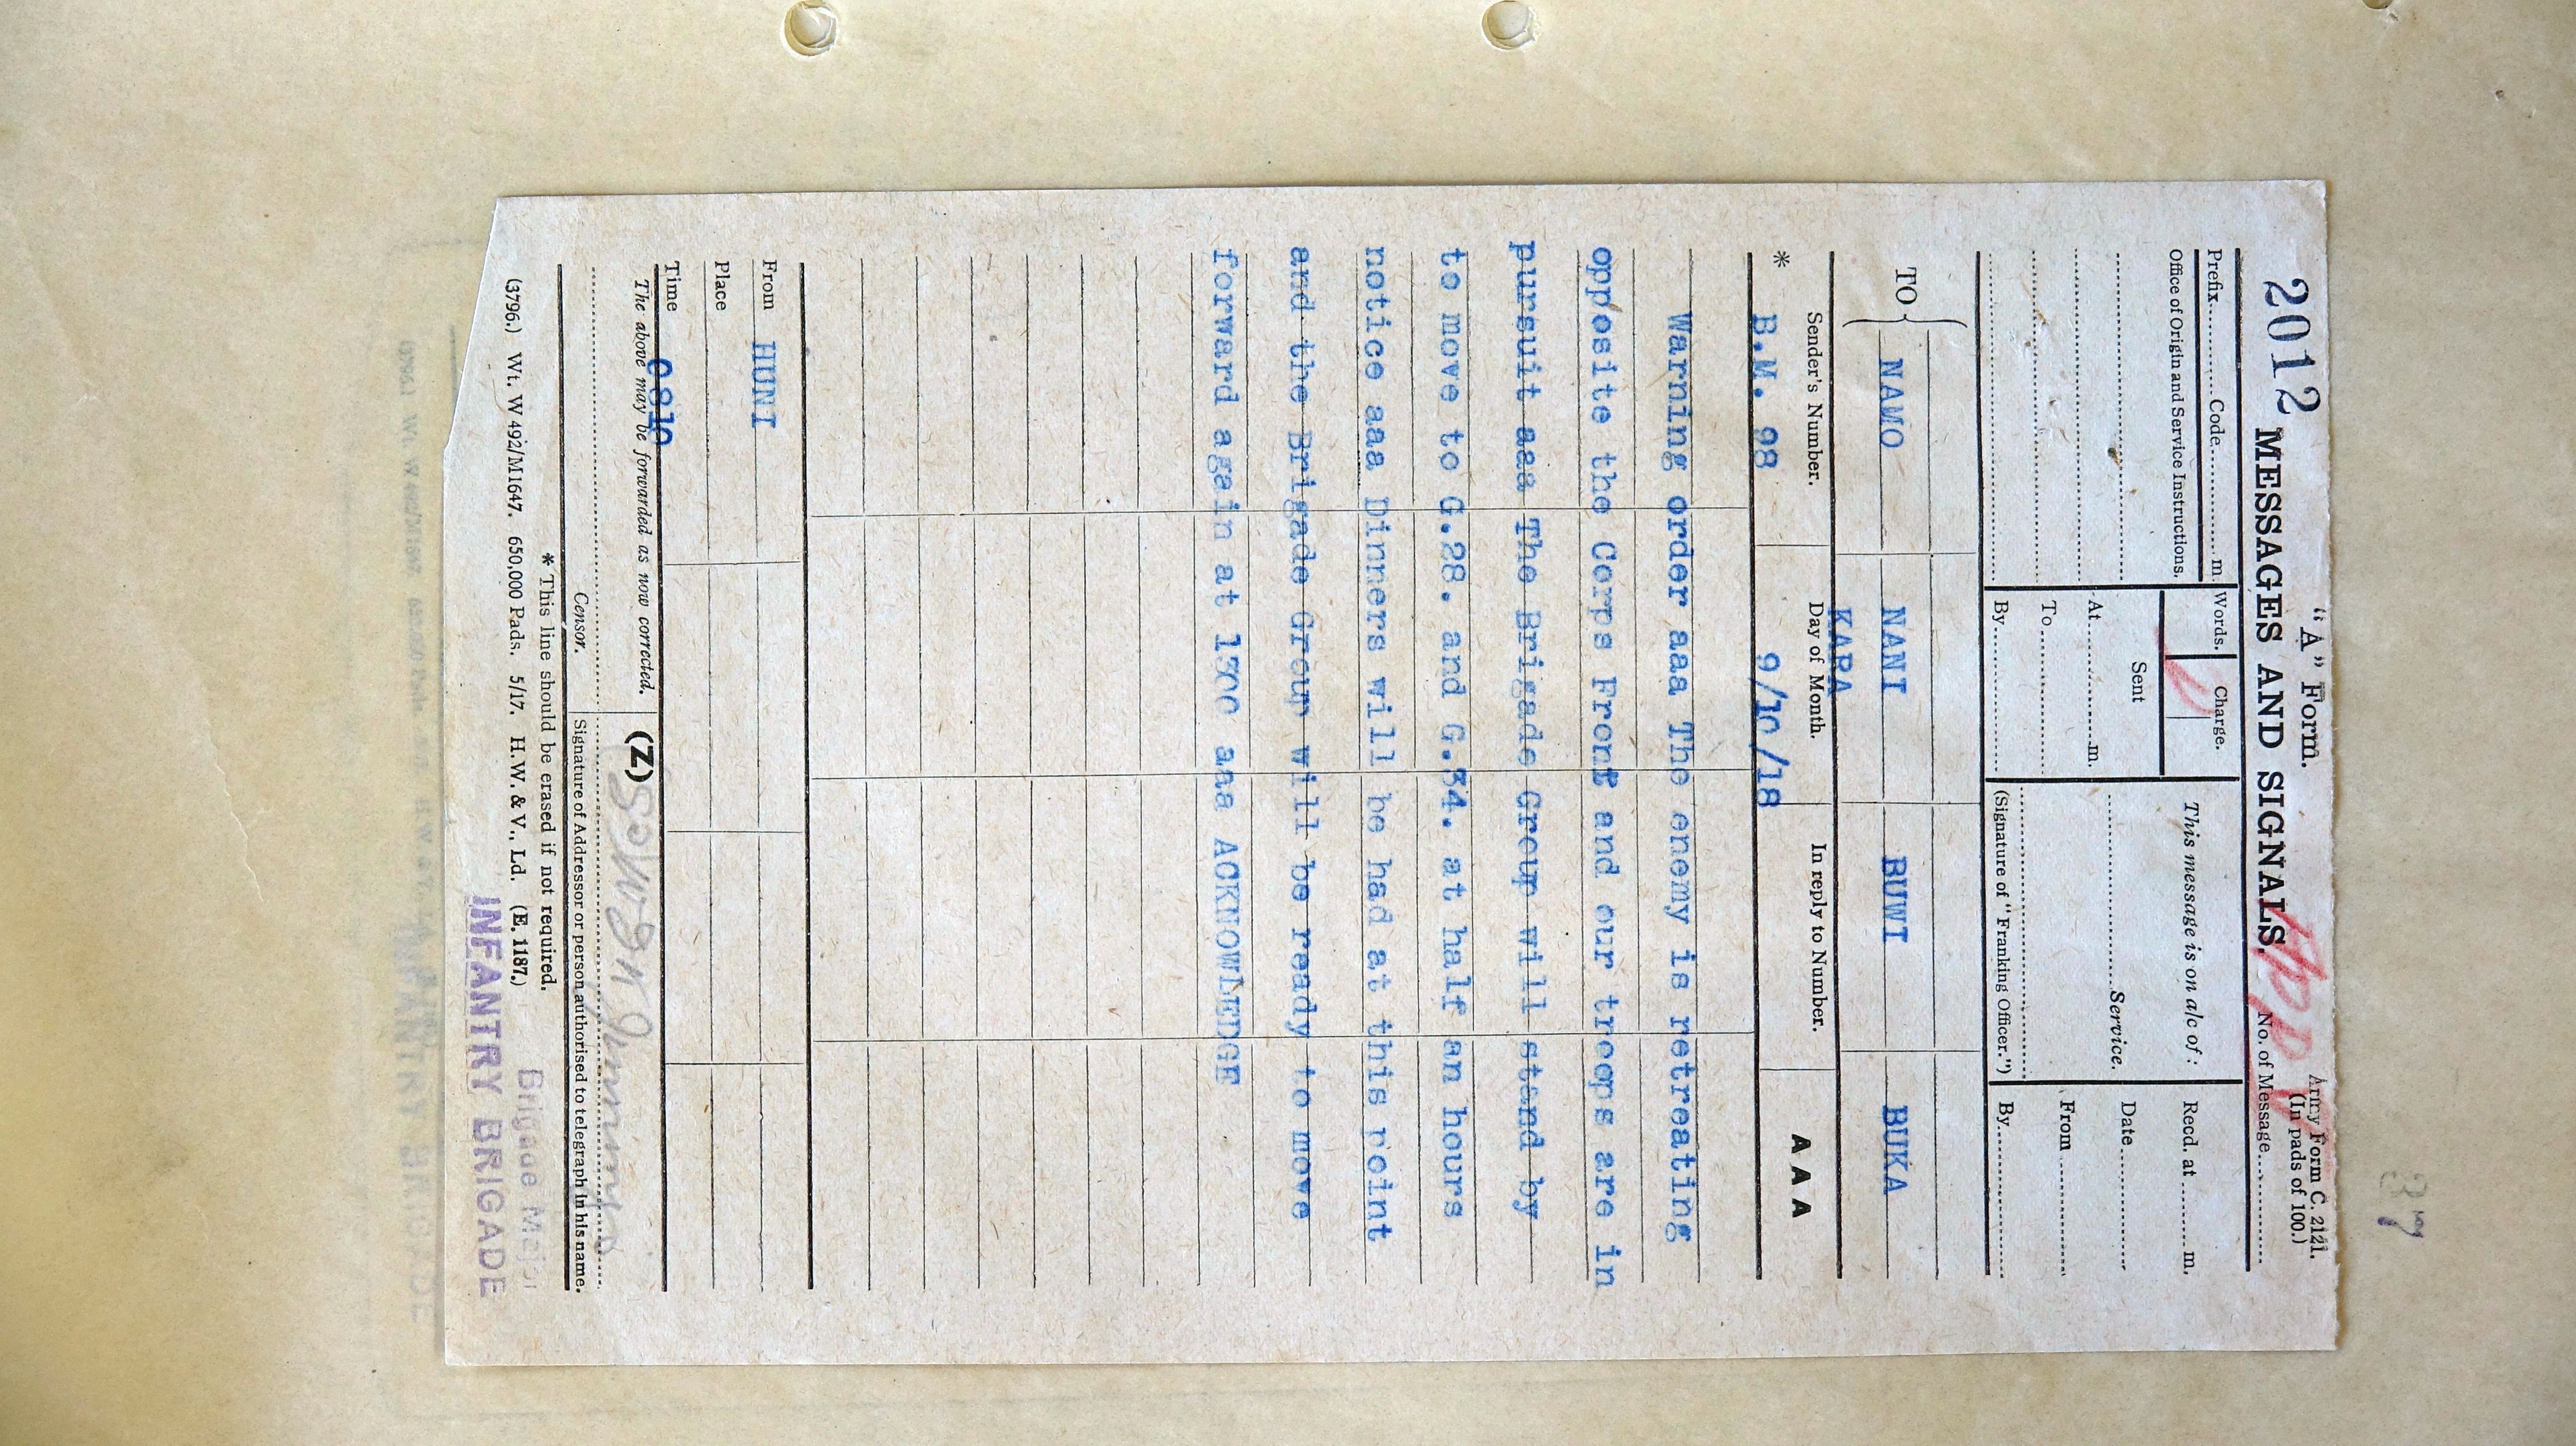 37
"A" Form.
Army Form C. 2121.
(In pads of 100.)
2012 MESSAGES AND SIGNALS. No. of Message............
Prefix............Code............m.
Words.
Charge.
This message is on a/c of:
Recd. at ........ m.
Office of Origin and Service Instructions.
Sent
At............m.
To............
By............
............Service.
(Signature of "Franking Officer.")
Date............
From............
By............
TO
NAMO NANI BUWI BUKA
KARA
Sender's Number. Day of Month. In reply to Number. AAA
* B.M. 98 9/10/18
Warning order aaa The enemy is retreating
opposite the Corps Front and our troops are in
pursuit aaa The Brigade Group will stand by
to move to G.28. and G.34. at half an hours
notice aaa Dinners will be had at this point
and the Brigade Group will be ready to move
forward again at 1300 aaa ACKNOWLEDGE
From HUNI
Place
Time 0810
The above may be forwarded as now corrected. (Z)
Censor. Signature of Addressor or person authorised to telegraph in his name.
* This line should be erased if not required.
(3796.) Wt. W 492/M1647. 650,000 Pads. 5/17. H.W. & V., Ld. (E. 1187.)
Brigade Major
INFANTRY BRIGADE